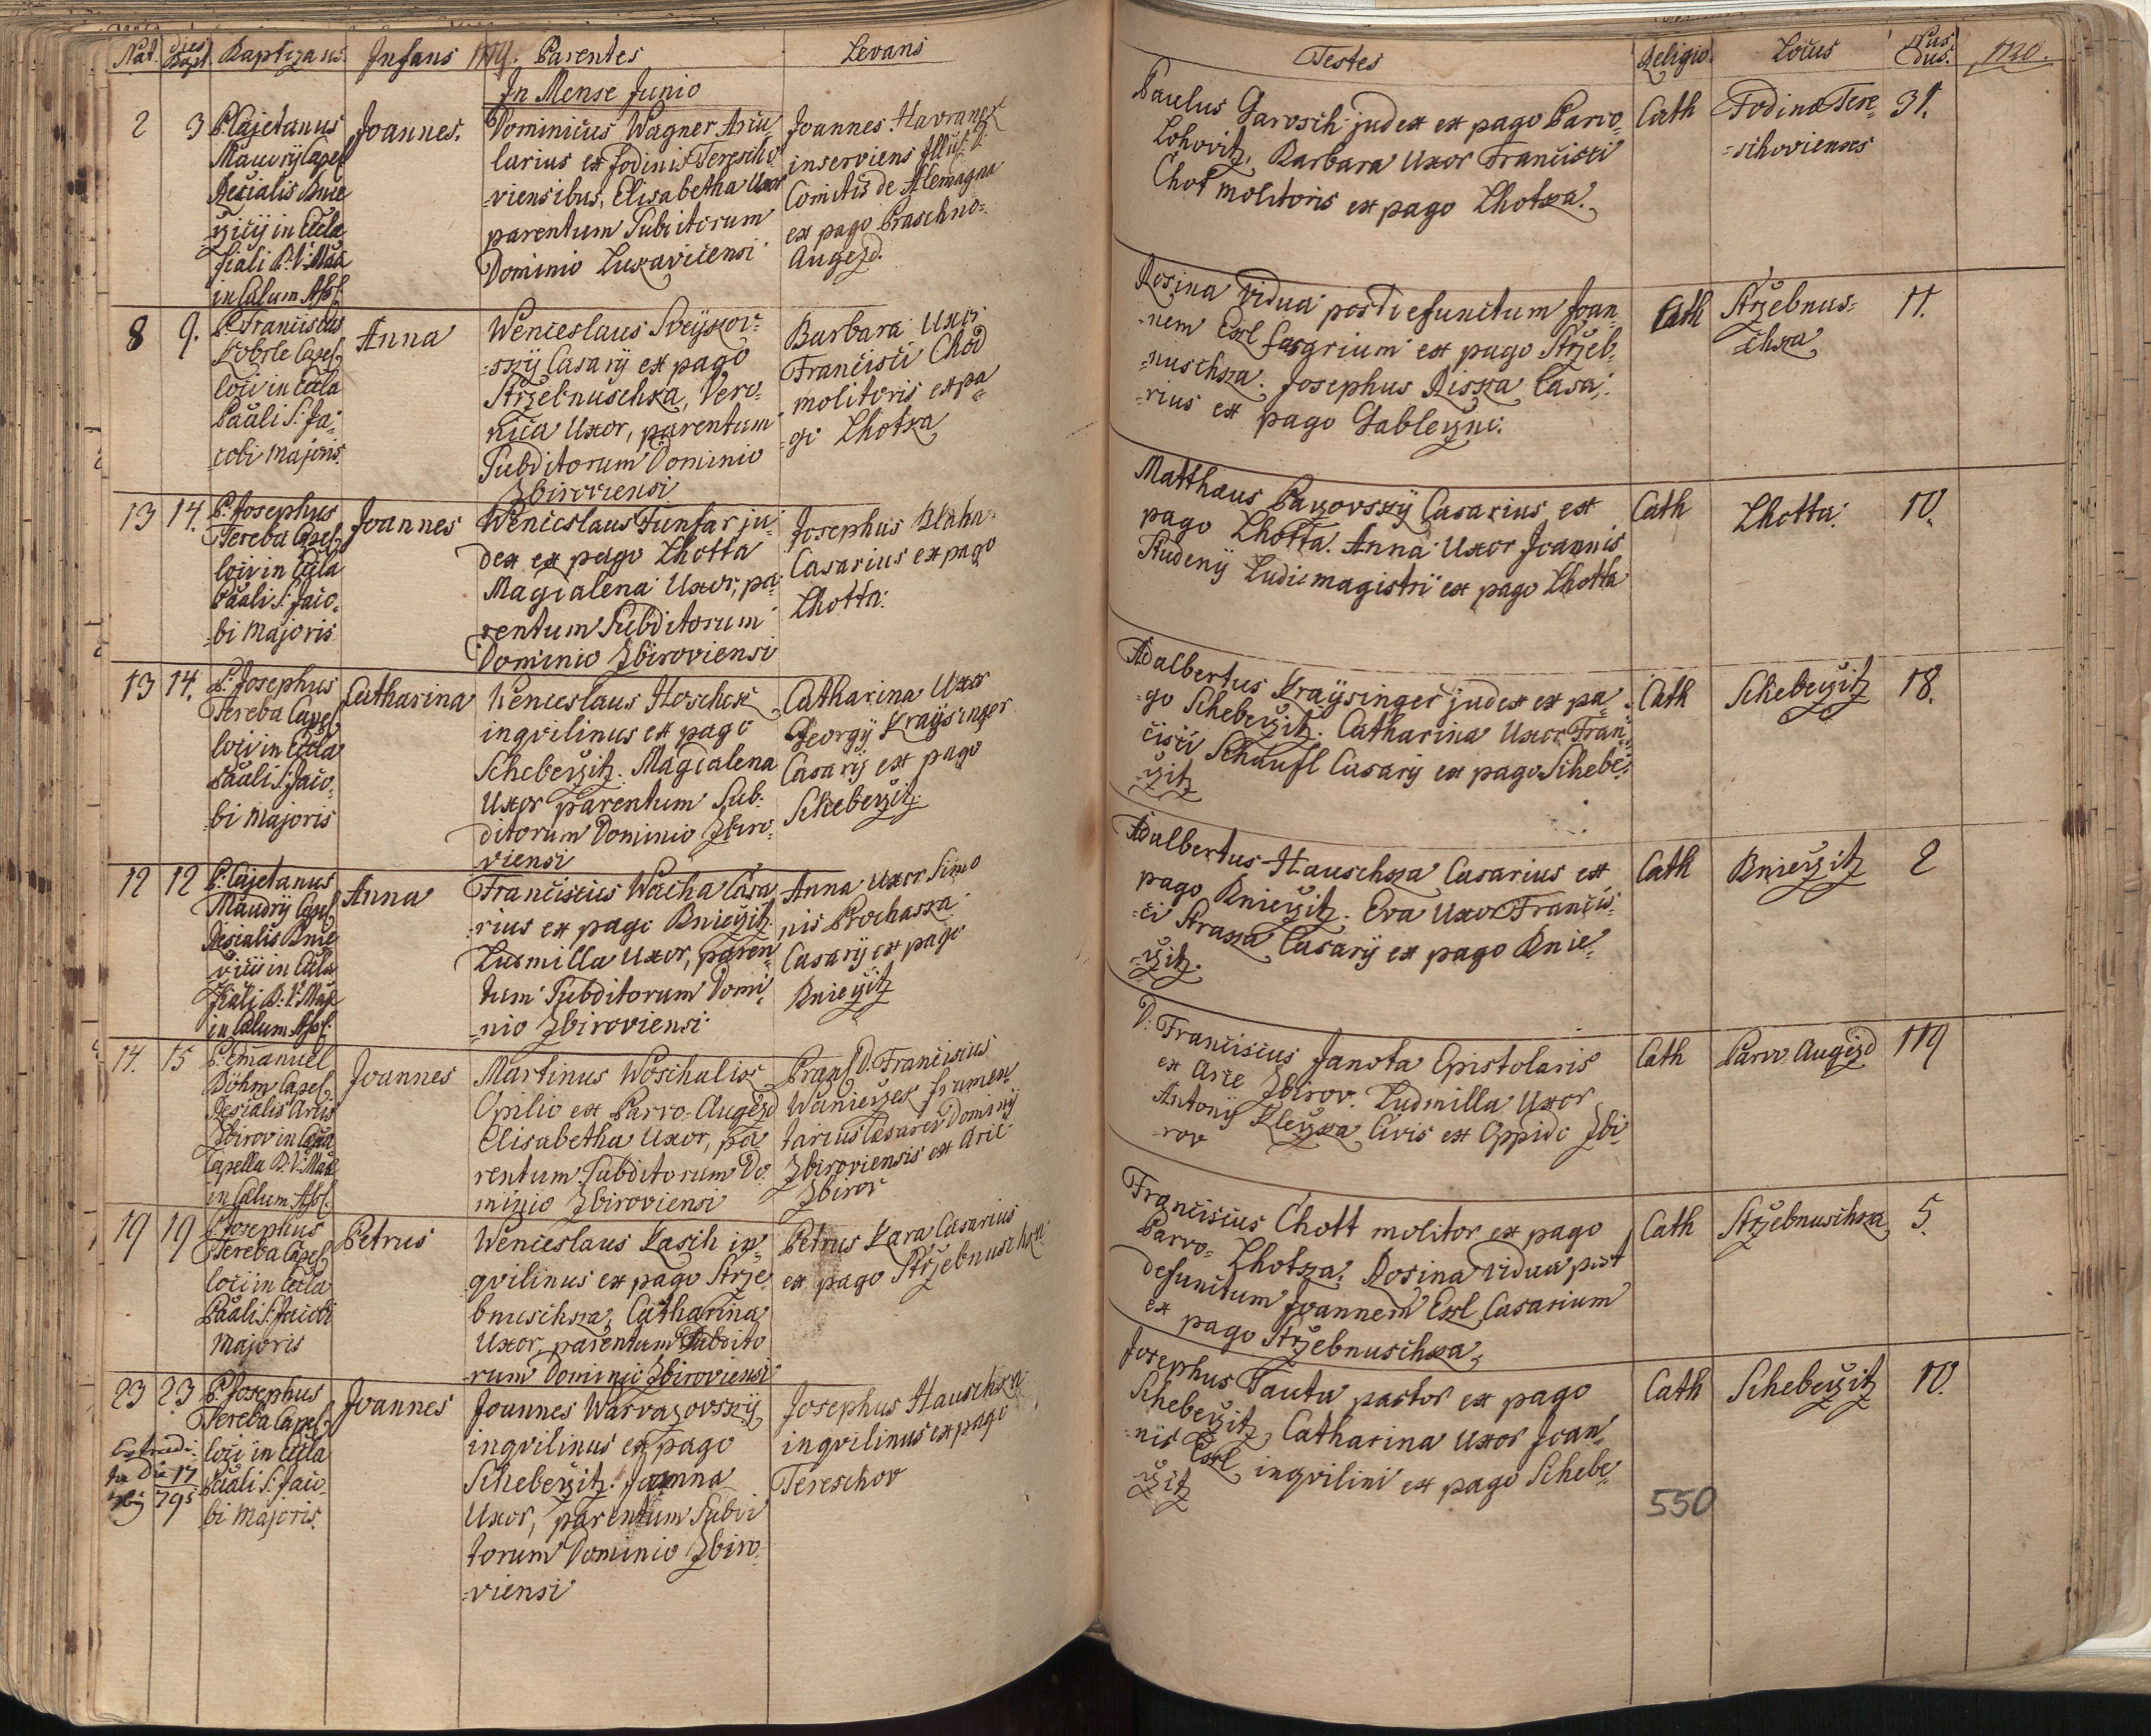 Nat. dies Bapt. Baptizans Infans Parentes Levans
In Mense Junio
2 3 P. Cajetanus Joannes. Dominicus Wagner
Maudrÿ Capel
larius ex fodinis Terescho
viensibus, Elisabetha Uxor
parentum Subditorum
Dominio Lukavicensi
in Cælum Ass:
Joannes Havranek
inserviens Illus: D:
Comitis de Alemagna
ex pago Praschno-
Augezd.
8 9. P. Franciscus Anna
loci in Eccla
Pāali S: Ja-
cobi majoris.
Wenceslaus
-skÿ Casarÿ ex pago
Strzebnuschka, Vero-
nica Uxor, parentum
Subditorum Dominio
Zbiroviensi
Barbara Uxor
Francisci Chod
molitoris ex pa-
-go Lhotka
13 14. P. Josephus Joannes
Tereba Capel
loci in Eccla
Pāali S: Jaco-
-bi majoris
Wenceslaus Funfar ju-
dex ex pago Lhotta
Magdalena Uxor, pa-
rentum Subditorum
Dominio Zbiroviensi
Josephus Blaha
Casarius ex pago
Lhotta.
13 14. P. Josephus Catharina
Tereba Capel
loci in Eccla
Pāali S: Jaco-
-bi majoris
Wenceslaus Hoschek
inqvilinus ex pago
Scheberzitz. Magdalena
Uxor parentum Sub-
ditorum Dominio Zbiro-
viensi
Catharina Uxor
Georgÿ Kraÿsinger
Casarÿ ex pago
Scheberzitz.
12 12 P. Cajetanus Anna
Maudrÿ Capel
in Cælum Ass:
Franciscus Wacha Casa
-rius ex pago Kniezitz.
Ludmilla Uxor, paren-
tum Subditorum Domi-
-nio Zbiroviensi
Anna Uxor Simo
nis Prochaska
Casarÿ ex pago
Kniezitz
14. 15 P. Emanuel Joannes
Böhm Capel
Zbirov in
Capella B: V: Mariæ
in Cælum Ass:
Martinus Woschalik
Opilio ex Parvo-Augezd
Elisabetha Uxor, pa
rentum Subditorum Do
minio Zbiroviensi
D. Franciscus
Wanieczek frumen-
tarius Cæsarei Dominÿ
Zbiroviensis ex Arce
Zbirov
19 19 P. Josephus Petrus
Tereba Capel
loci in Eccla
Pāali S: Jacobi
majoris
Wenceslaus Kasch in-
qvilinus ex pago Strze
bnuschka, Catharina
Uxor, parentum Subdito
rum Dominio Zbiroviensi
Petrus Kara Casarius
ex pago Strzebnuschka
23 23 P. Josephus Joannes
Tereba Capel
loci in Eccla
Pāali S: Jaco-
bi majoris.
die 17
795
Joannes Warvazovskÿ
inqvilinus ex pago
Scheberzitz. Joanna
Uxor, parentum Subdi
torum Dominio Zbiro-
-viensi
Josephus Hauschka
inqvilinus ex pago
Tereschov
Testes Religio Locus Nus: Dus: 1120.
Paulus Garosch judex ex pago Parvo-
Lohovitz, Barbara Uxor Francisci
Chot molitoris ex pago Lhotka.
Cath Fodinæ Tere-
-schovienses 31.
Rosina Vidua post defunctum Joan-
-nem Exl Casarium ex pago Strzeb-
-nuschka. Josephus Riska Casa-
-rius ex pago Gableczni.
Cath Strzebnus-
-chka 11.
Matthæus Pazovskÿ Casarius ex
pago Lhotta. Anna Uxor Joannis
Studenÿ Ludimagistri ex pago Lhotta
Cath Lhotta. 10.
Adalbertus Kraÿsinger judex ex pa-
-go Scheberzitz. Catharina Uxor Fran-
cisci Schaufl Casarÿ ex pago Schebe-
-rzitz
Cath Scheberzitz 18.
Adalbertus Hauschka Casarius ex
pago Kniezitz. Eva Uxor Francis-
-ci Straka Casarÿ ex pago Knie-
-zitz.
Cath Kniezitz 2
D: Franciscus Janota Epistolaris
ex Arce Zbirov. Ludmilla Uxor
Antonÿ Kleczka Civis ex Oppido Zbi-
-rov
Cath Parv Augezd 119
Franciscus Chott molitor ex pago
Parvo-Lhotka. Rosina vidua post
defunctum Joannem Exl Casarium
ex pago Strzebnuschka.
Cath Strzebnuschka 5.
Josephus Tauta pastor ex pago
Scheberzitz, Catharina uxor Joan-
-nis Exl inqvilini ex pago Schebe-
rzitz
Cath Scheberzitz 10.
550